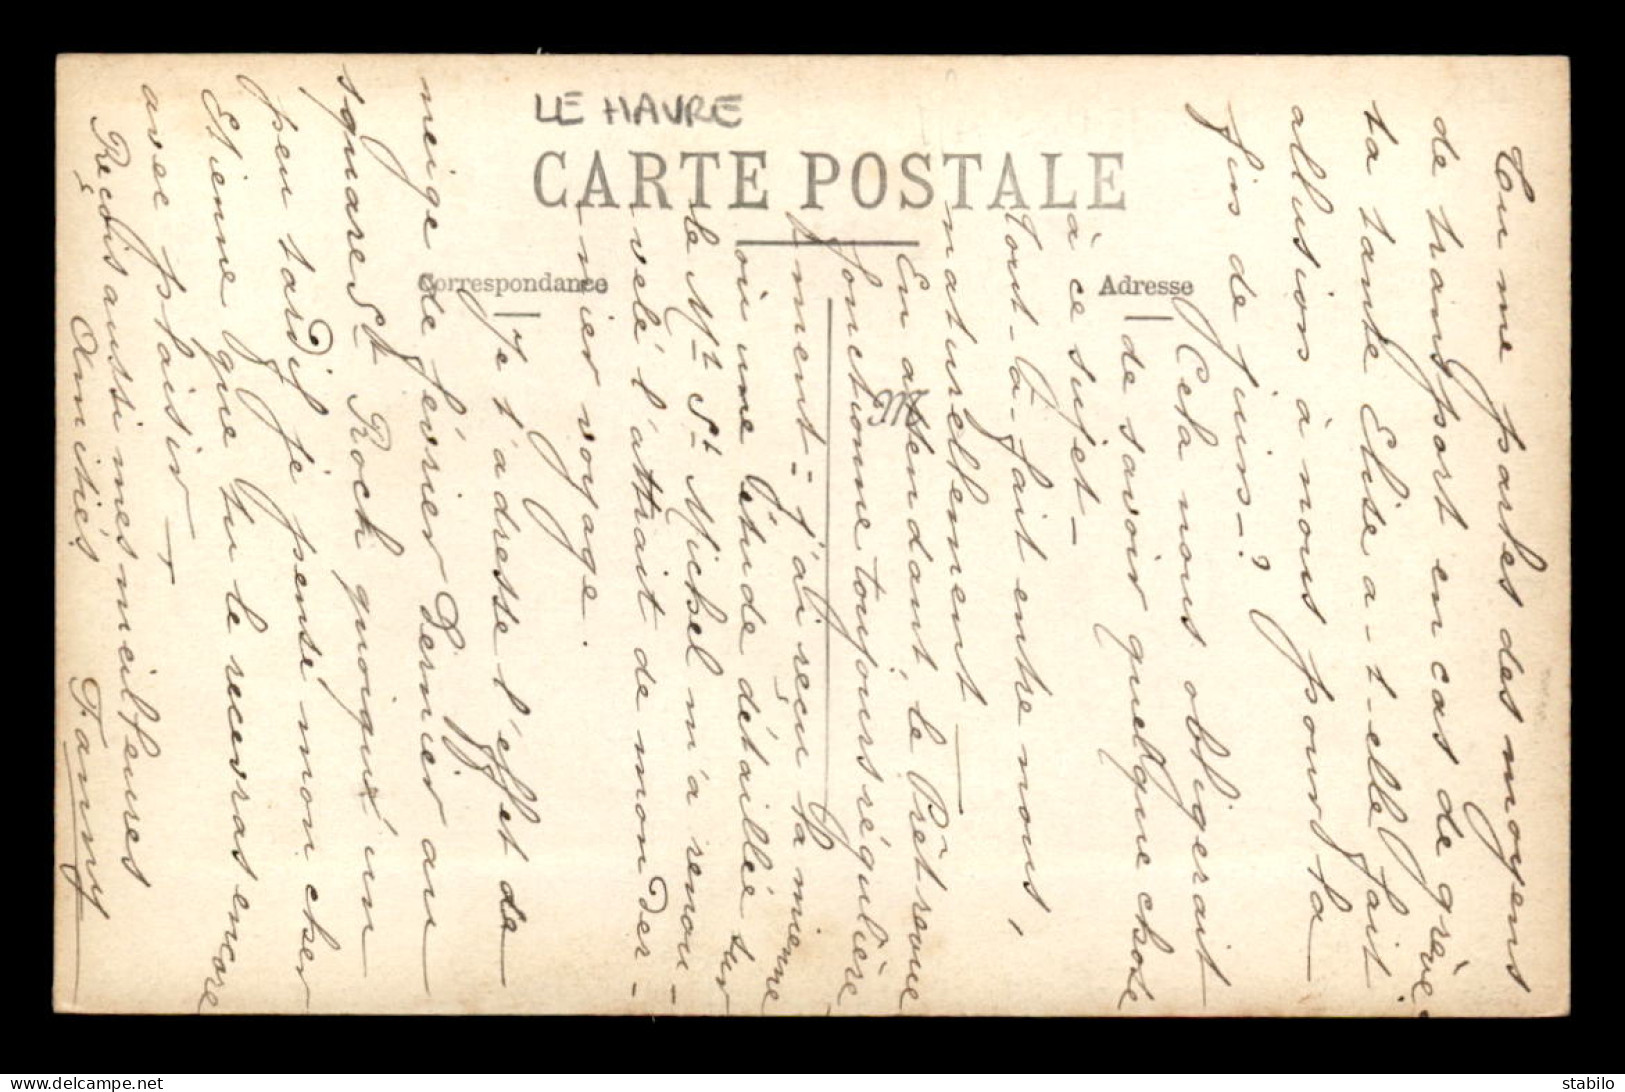 LE HAVRE
CARTE POSTALE
Correspondance
Adresse
Tu me parles des moyens
de transport en cas de grève
ta tante Elise a-t-elle fait
allusion à nous pour la
fin de juin-?
Cela nous obligerait
de savoir quelque chose
à ce sujet-
Tout-à-fait entre nous,
naturellement-
En attendant, le Prêt revue
fonctionne toujours régulière
ment- j'ai reçu la mienne
où une étude détaillée sur
le Mt St Michel m'a renou-
velé l'attrait de mon der-
nier voyage.
Je t'adresse l'effet de
neige de février dernier au
square St Roch quoiqu'un
peu tardif je pense mon cher
Etienne que tu le recevras encore
avec plaisir-
Reçois aussi mes meilleures
Amitiés Fanny
stabilo